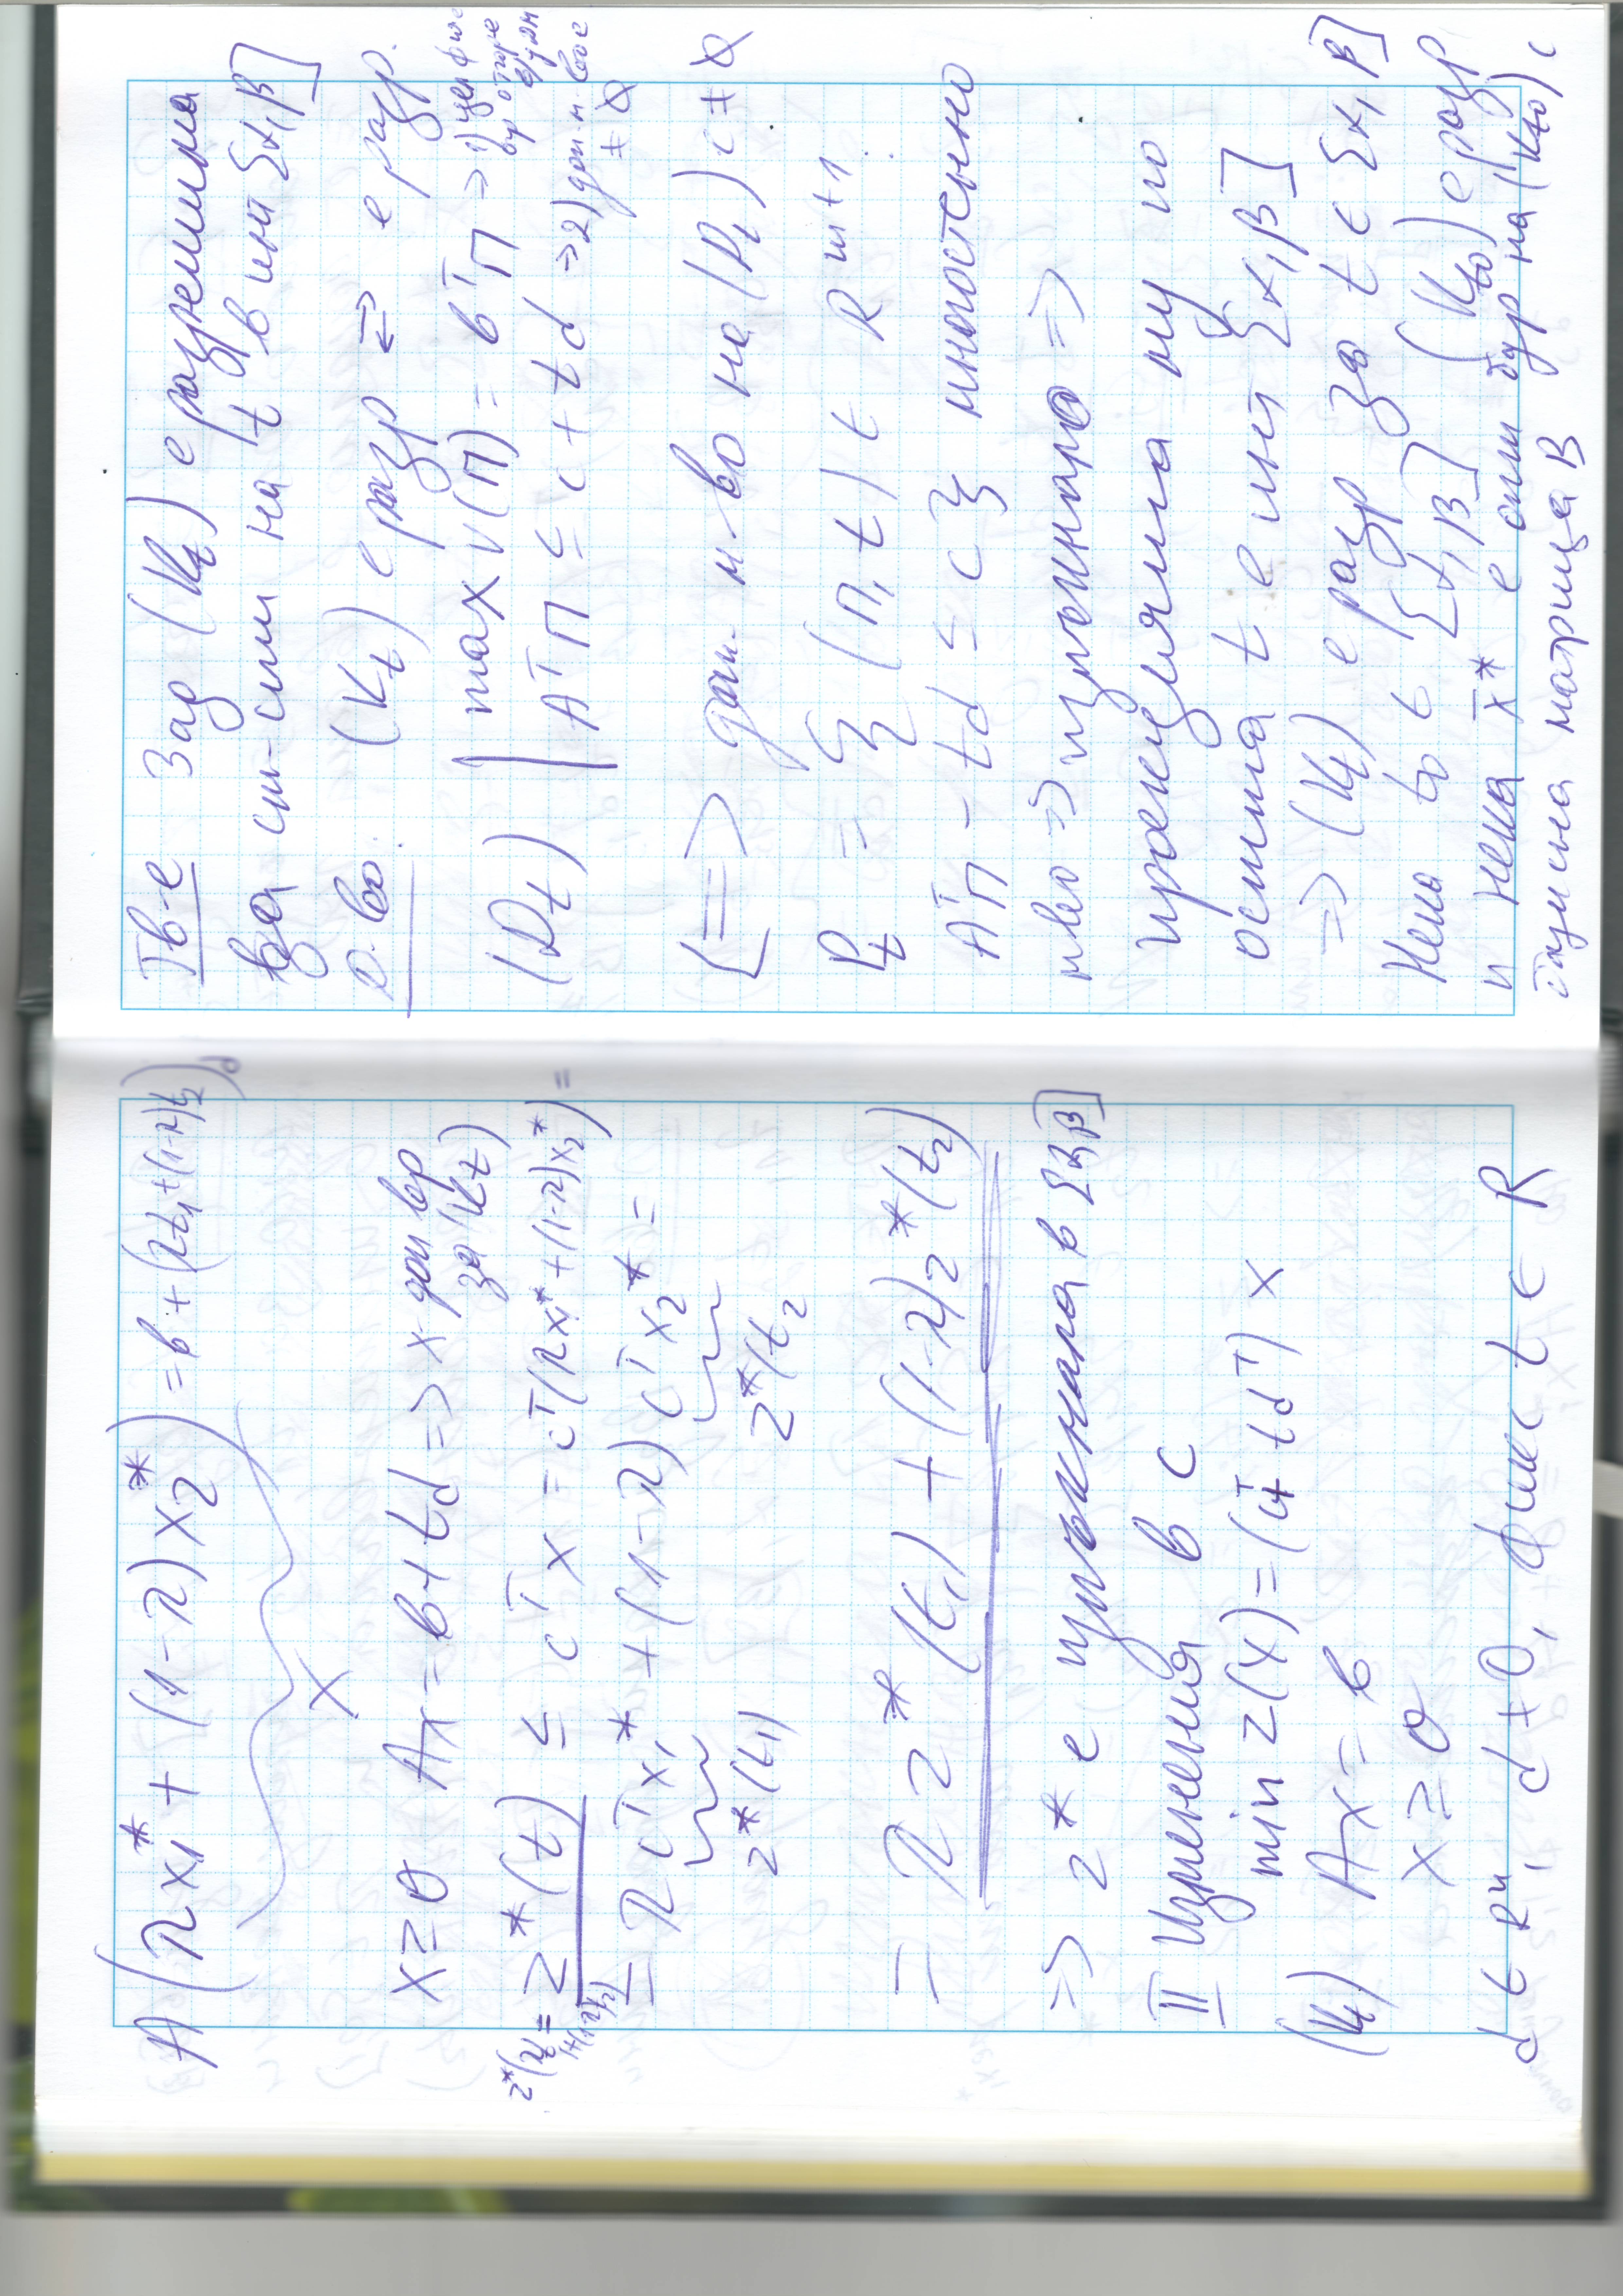 A(λx₁* + (1-λ)x₂*) = в + (λt₁+(1-λ)t₂)d
x
x ≥ 0 Ax = в + td => x доп вр
за (K_t)
z*(λt₁+(1-λ)t₂) = z*(t) ≤ cᵀx = cᵀ(λx₁* + (1-λ)x₂*) =
= λ cᵀx₁* + (1-λ) cᵀx₂* =
z*(t₁) z*(t₂
= λ z*(t₁) + (1-λ) z*(t₂)
=> z* е изпъкнала в [α,β]
II Изменения в c
min z(x) = (cᵀ + tdᵀ) x
(K_t) Ax = в
x ≥ 0
d ∈ Rⁿ, d ≠ 0, фикс t ∈ R
Тв-е Зад (K_t) е разрешима
за ст-сти на t в инт [α,β]
Д-во. (K_t) е разр ⇄ е разр.
(D_t) | max v(π) = вᵀπ =>
Aᵀπ ≤ c + td => 2) доп м-вое
≠ Ø
<=> доп. м-во на (D_t) с ≠ Ø
P_t = { (π, t) ∈ R^{m+1} :
Aᵀπ - td ≤ c } многостенно
м-во => изпъкнало =>
проекцията му по
остта t е инт [α,β]
=> (K_t) е разр за t ∈ [α,β]
Нека t₀ ∈ [α,β] (K_{t₀}) е разр
и нека x̄* е опт бдр на (K_{t₀}) с
базисна матрица B